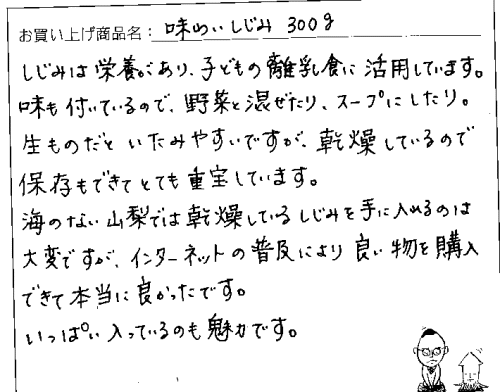 お買い上げ商品名： 味わいしじみ 300g
しじみは栄養があり、子どもの離乳食に活用しています。
味も付いているので、野菜と混ぜたり、スープにしたり。
生ものだといたみやすいですが、乾燥しているので
保存もできてとても重宝しています。
海のない山梨では乾燥しているしじみを手に入れるのは
大変ですが、インターネットの普及により良い物を購入
できて本当に良かったです。
いっぱい入っているのも魅力です。